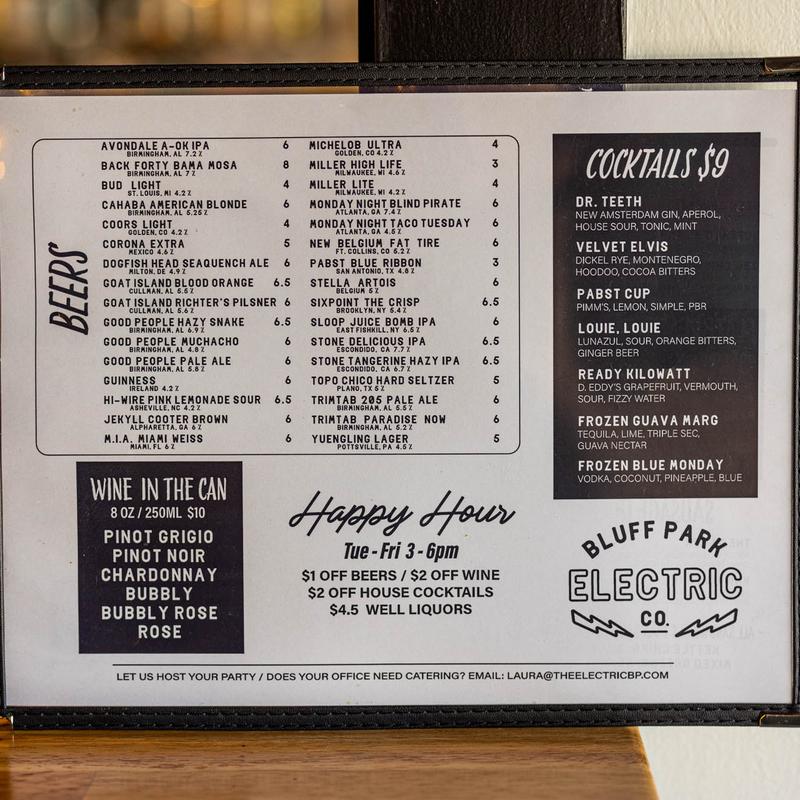 BEERS
AVONDALE A-OK IPA 6
BIRMINGHAM, AL 7.2%
BACK FORTY BAMA MOSA 8
BIRMINGHAM, AL 7%
BUD LIGHT 4
ST. LOUIS, MI 4.2%
CAHABA AMERICAN BLONDE 6
BIRMINGHAM, AL 5.25%
COORS LIGHT 4
GOLDEN, CO 4.2%
CORONA EXTRA 5
MEXICO 4.6%
DOGFISH HEAD SEAQUENCH ALE 6
MILTON, DE 4.9%
GOAT ISLAND BLOOD ORANGE 6.5
CULLMAN, AL 5.5%
GOAT ISLAND RICHTER'S PILSNER 6
CULLMAN, AL 5.6%
GOOD PEOPLE HAZY SNAKE 6.5
BIRMINGHAM, AL 6.9%
GOOD PEOPLE MUCHACHO 6
BIRMINGHAM, AL 4.8%
GOOD PEOPLE PALE ALE 6
BIRMINGHAM, AL 5.8%
GUINNESS 6
IRELAND 4.2%
HI-WIRE PINK LEMONADE SOUR 6.5
ASHEVILLE, NC 4.2%
JEKYLL COOTER BROWN 6
ALPHARETTA, GA 6%
M.I.A. MIAMI WEISS 6
MIAMI, FL 6%
MICHELOB ULTRA 4
GOLDEN, CO 4.2%
MILLER HIGH LIFE 3
MILWAUKEE, WI 4.6%
MILLER LITE 4
MILWAUKEE, WI 4.2%
MONDAY NIGHT BLIND PIRATE 6
ATLANTA, GA 7.4%
MONDAY NIGHT TACO TUESDAY 6
ATLANTA, GA 4.5%
NEW BELGIUM FAT TIRE 6
FT. COLLINS, CO 5.2%
PABST BLUE RIBBON 3
SAN ANTONIO, TX 4.8%
STELLA ARTOIS 6
BELGIUM 5%
SIXPOINT THE CRISP 6.5
BROOKLYN, NY 5.4%
SLOOP JUICE BOMB IPA 6
EAST FISHKILL, NY 6.5%
STONE DELICIOUS IPA 6.5
ESCONDIDO, CA 7.7%
STONE TANGERINE HAZY IPA 6.5
ESCONDIDO, CA 6.7%
TOPO CHICO HARD SELTZER 5
PLANO, TX 5%
TRIMTAB 205 PALE ALE 6
BIRMINGHAM, AL 5.5%
TRIMTAB PARADISE NOW 6
BIRMINGHAM, AL 5.2%
YUENGLING LAGER 5
POTTSVILLE, PA 4.5%
COCKTAILS $9
DR. TEETH
NEW AMSTERDAM GIN, APEROL,
HOUSE SOUR, TONIC, MINT
VELVET ELVIS
DICKEL RYE, MONTENEGRO,
HOODOO, COCOA BITTERS
PABST CUP
PIMM'S, LEMON, SIMPLE, PBR
LOUIE, LOUIE
LUNAZUL, SOUR, ORANGE BITTERS,
GINGER BEER
READY KILOWATT
D. EDDY'S GRAPEFRUIT, VERMOUTH,
SOUR, FIZZY WATER
FROZEN GUAVA MARG
TEQUILA, LIME, TRIPLE SEC,
GUAVA NECTAR
FROZEN BLUE MONDAY
VODKA, COCONUT, PINEAPPLE, BLUE
WINE IN THE CAN
8 OZ / 250ML $10
PINOT GRIGIO
PINOT NOIR
CHARDONNAY
BUBBLY
BUBBLY ROSE
ROSE
Happy Hour
Tue - Fri 3 - 6pm
$1 OFF BEERS / $2 OFF WINE
$2 OFF HOUSE COCKTAILS
$4.5 WELL LIQUORS
BLUFF PARK
ELECTRIC
CO.
LET US HOST YOUR PARTY / DOES YOUR OFFICE NEED CATERING? EMAIL: LAURA@THEELECTRICBP.COM